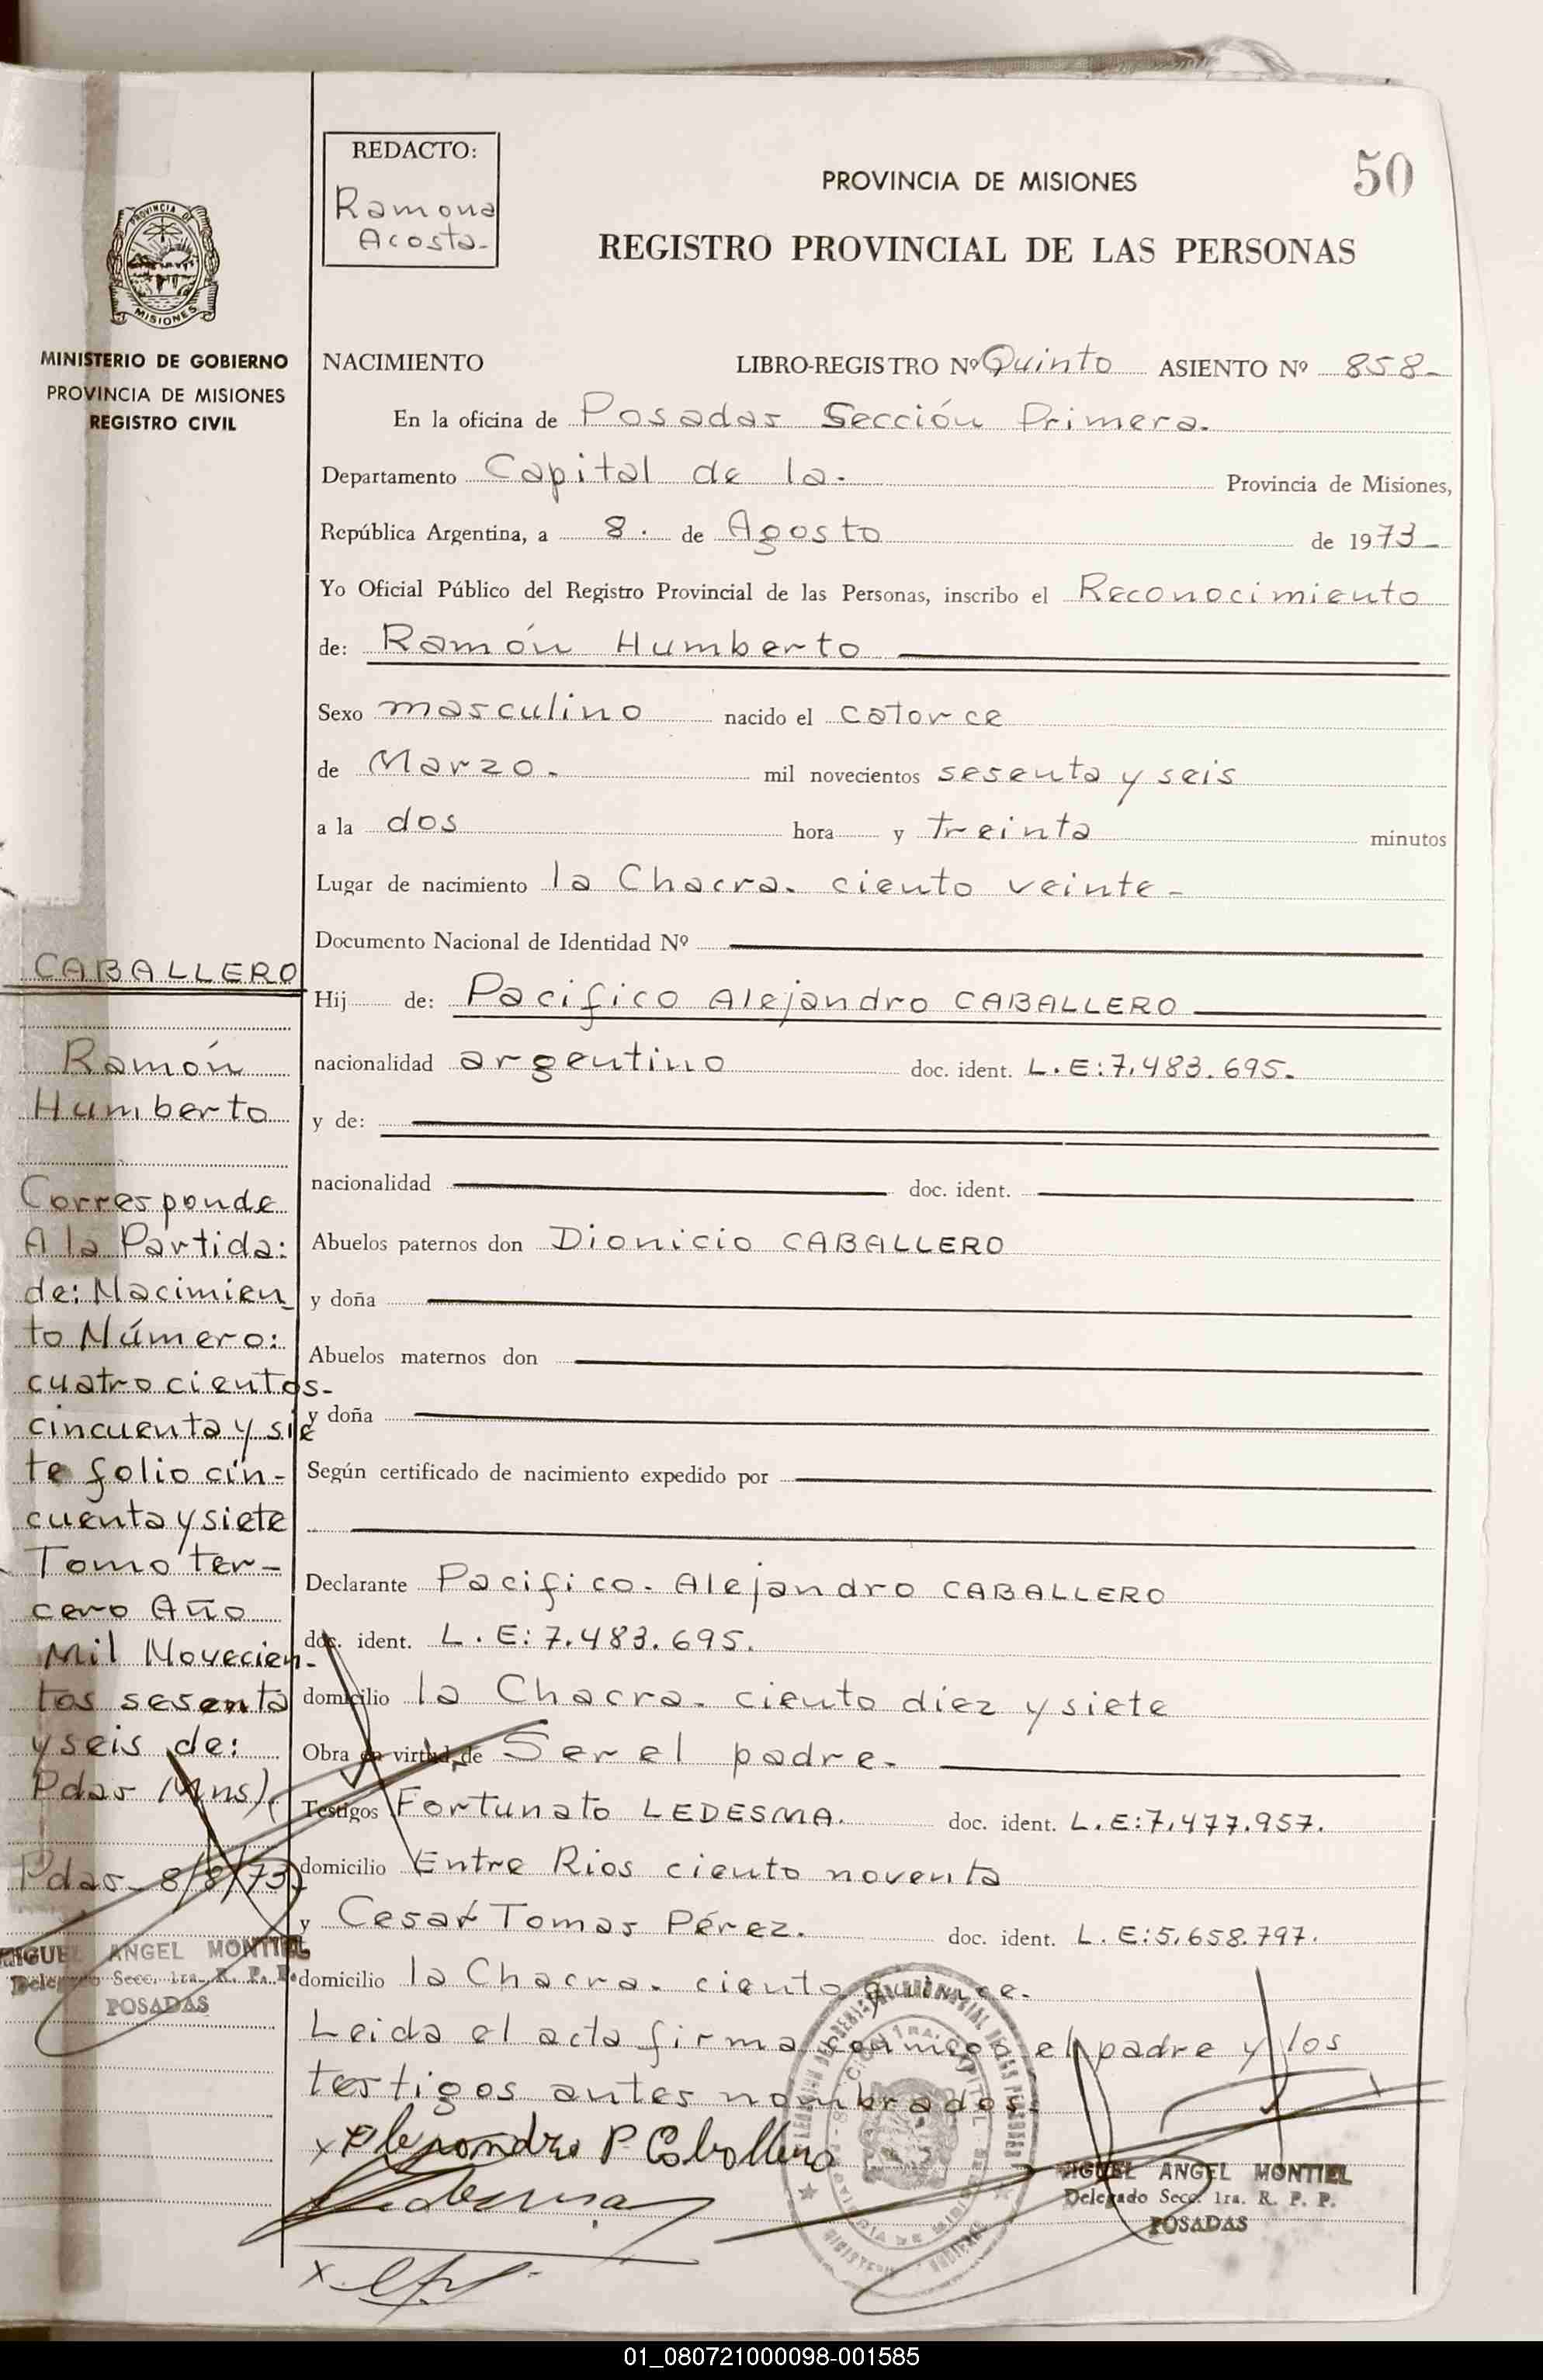 REDACTO:
Ramona
Acosta-
PROVINCIA DE MISIONES
50
REGISTRO PROVINCIAL DE LAS PERSONAS
PROVINCIA DE
MISIONES
MINISTERIO DE GOBIERNO
PROVINCIA DE MISIONES
REGISTRO CIVIL
NACIMIENTO LIBRO-REGISTRO Nº Quinto ASIENTO Nº 858-
En la oficina de Posadas Sección Primera.
Departamento Capital de la. Provincia de Misiones,
República Argentina, a 8. de Agosto de 1973-
Yo Oficial Público del Registro Provincial de las Personas, inscribo el Reconocimiento
de: Ramón Humberto
Sexo masculino nacido el catorce
de Marzo. mil novecientos sesenta y seis
a la dos hora y treinta minutos
Lugar de nacimiento la Chacra. ciento veinte-
Documento Nacional de Identidad Nº
Hij de: Pacifico Alejandro CABALLERO
nacionalidad argentino doc. ident. L.E:7.483.695.
y de:
nacionalidad doc. ident.
Abuelos paternos don Dionicio CABALLERO
y doña
Abuelos maternos don
y doña
Según certificado de nacimiento expedido por
Declarante Pacifico. Alejandro CABALLERO
doc. ident. L.E:7.483.695.
domicilio la Chacra. ciento diez y siete
Obra en virtud de Ser el padre.
Testigos Fortunato LEDESMA. doc. ident. L.E:7.477.957.
domicilio Entre Rios ciento noventa
y Cesar Tomas Pérez. doc. ident. L.E:5.658.797.
domicilio la Chacra. ciento quince.
Leida el acta firma conmigo el padre y los
testigos antes nombrados.
x Alejandro P. Caballero
MIGUEL ANGEL MONTIEL
Delegado Secc. 1ra. R. P. P.
POSADAS
CABALLERO
Ramón
Humberto
Corresponde
A la Partida:
de: Nacimien
to Número:
cuatrocientos-
cincuenta y sie
te folio cin-
cuenta y siete
Tomo ter-
cero Año
Mil Novecien-
tos sesenta
y seis de:
Pdas (Mns).
Pdas- 8/8/73)
MIGUEL ANGEL MONTIEL
Delegado Secc. 1ra. R. P. P.
POSADAS
01_080721000098-001585